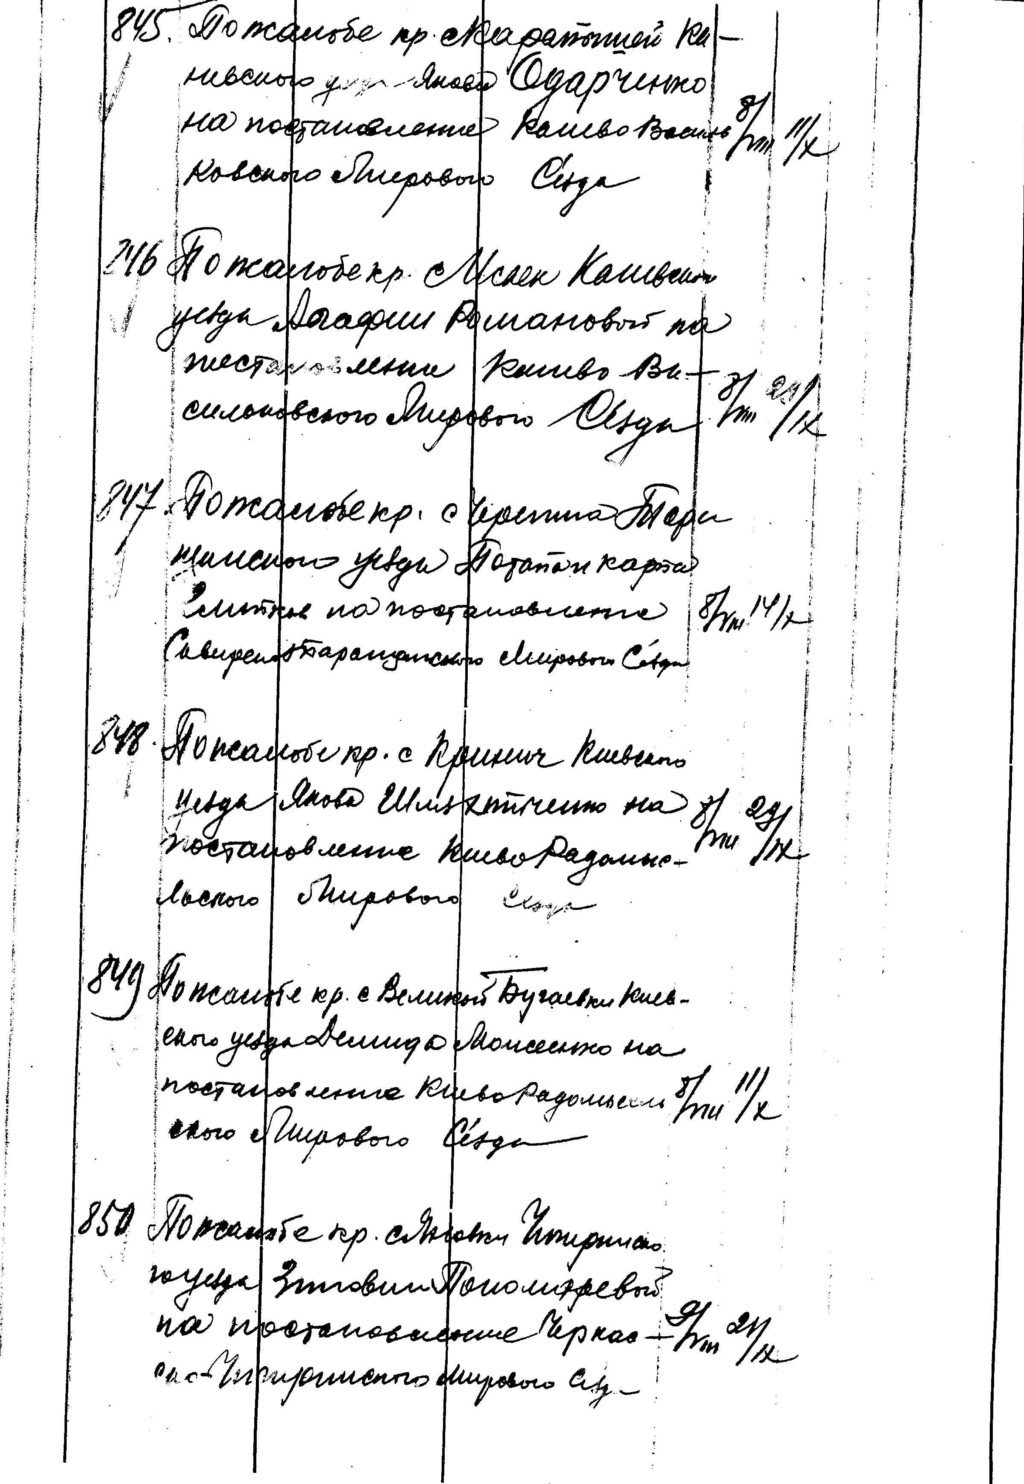 845. По жалобе кр. с Карапышей Ка-
невского Якова Одарченко
на постановление Киево Василь 8/VIII 11/X
ковского Мирового Сезда
846 По жалобе кр. с Мкен Киевского
уезда Агафии Романовой на
постановление Киево Ва-
сильковского Мирового Сезда 8/VIII 29/IX
847 По жалобе кр. с Черепина Тара
щанского уезда Потапа и Карпа
на постановление 8/VIII 14/X
Сквиро Таращанского Мирового Сезда
848. По жалобе кр. с Кринич Киевского
уезда Якова на 8/VIII 29/IX
постановление Киево Радомыс-
льского Мирового Сезда
849 По жалобе кр. с Великой Бугаевки Киев-
ского уезда Демида Моисеенко на
постановление Киево Радомысль 8/VIII 11/X
ского Мирового Сезда
850 По жалобе кр. с Яновки Чигиринско
го уезда Зиновии Пономаревой
на постановление Черкас- 9/VIII 29/IX
ско-Чигиринского Мирового Сезд